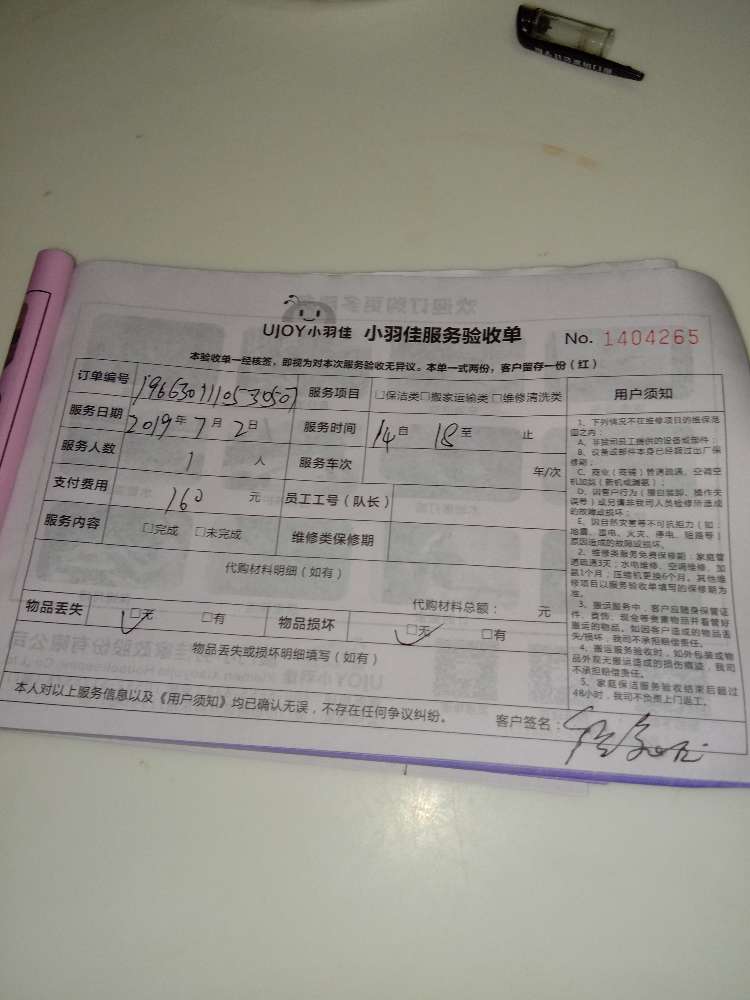 UJOY小羽佳 小羽佳服务验收单 No. 1404265
本验收单一经核签，即视为对本次服务验收无异议。本单一式两份，客户留存一份（红）
订单编号 服务项目 □保洁类□搬家运输类□维修清洗类
服务日期 2019年7月2日 服务时间 14自 18至 止
服务人数 1 人 服务车次 年/次
支付费用 160 元 员工工号（队长）
服务内容 □完成 □未完成 维修类保修期
代购材料明细（如有）
代购材料总额： 元
物品丢失 □无 □有 物品损坏 □无 □有
物品丢失或损坏明细填写（如有）
本人对以上服务信息以及《用户须知》均已确认无误，不存在任何争议纠纷。 客户签名：
用户须知
1、下列情况不在维修项目的维保范
围之内：
A、非我司员工提供的设备或部件；
B、设备或部件本身已经超过出厂保
修期；
C、商业（商铺）管道疏通、空调空
机加氨（新机或漏氨）；
D、因客户行为（擅自装卸、操作失
误等）或另请非我司人员检修所造成
的故障或损坏；
E、因自然灾害等不可抗拒力（如：
地震、雷电、火灾、停电、短路等）
原因造成的故障或损坏。
2、维修类服务免费保修期：家庭管
道疏通3天；水电维修、空调维修、加
氨1个月；压缩机更换6个月。其他维
修项目以服务验收单填写的保修期为
准。
3、搬运服务中，客户应随身保管证
件、首饰、现金等贵重物品并看管好
搬运的物品。如因客户造成的物品丢
失/损坏，我司不承担赔偿责任。
4、搬运服务验收时，如外包装或物
品外观无搬运造成的损伤痕迹，我司
不承担赔偿责任。
5、家庭保洁服务验收结束后超过
48小时，我司不负责上门返工。